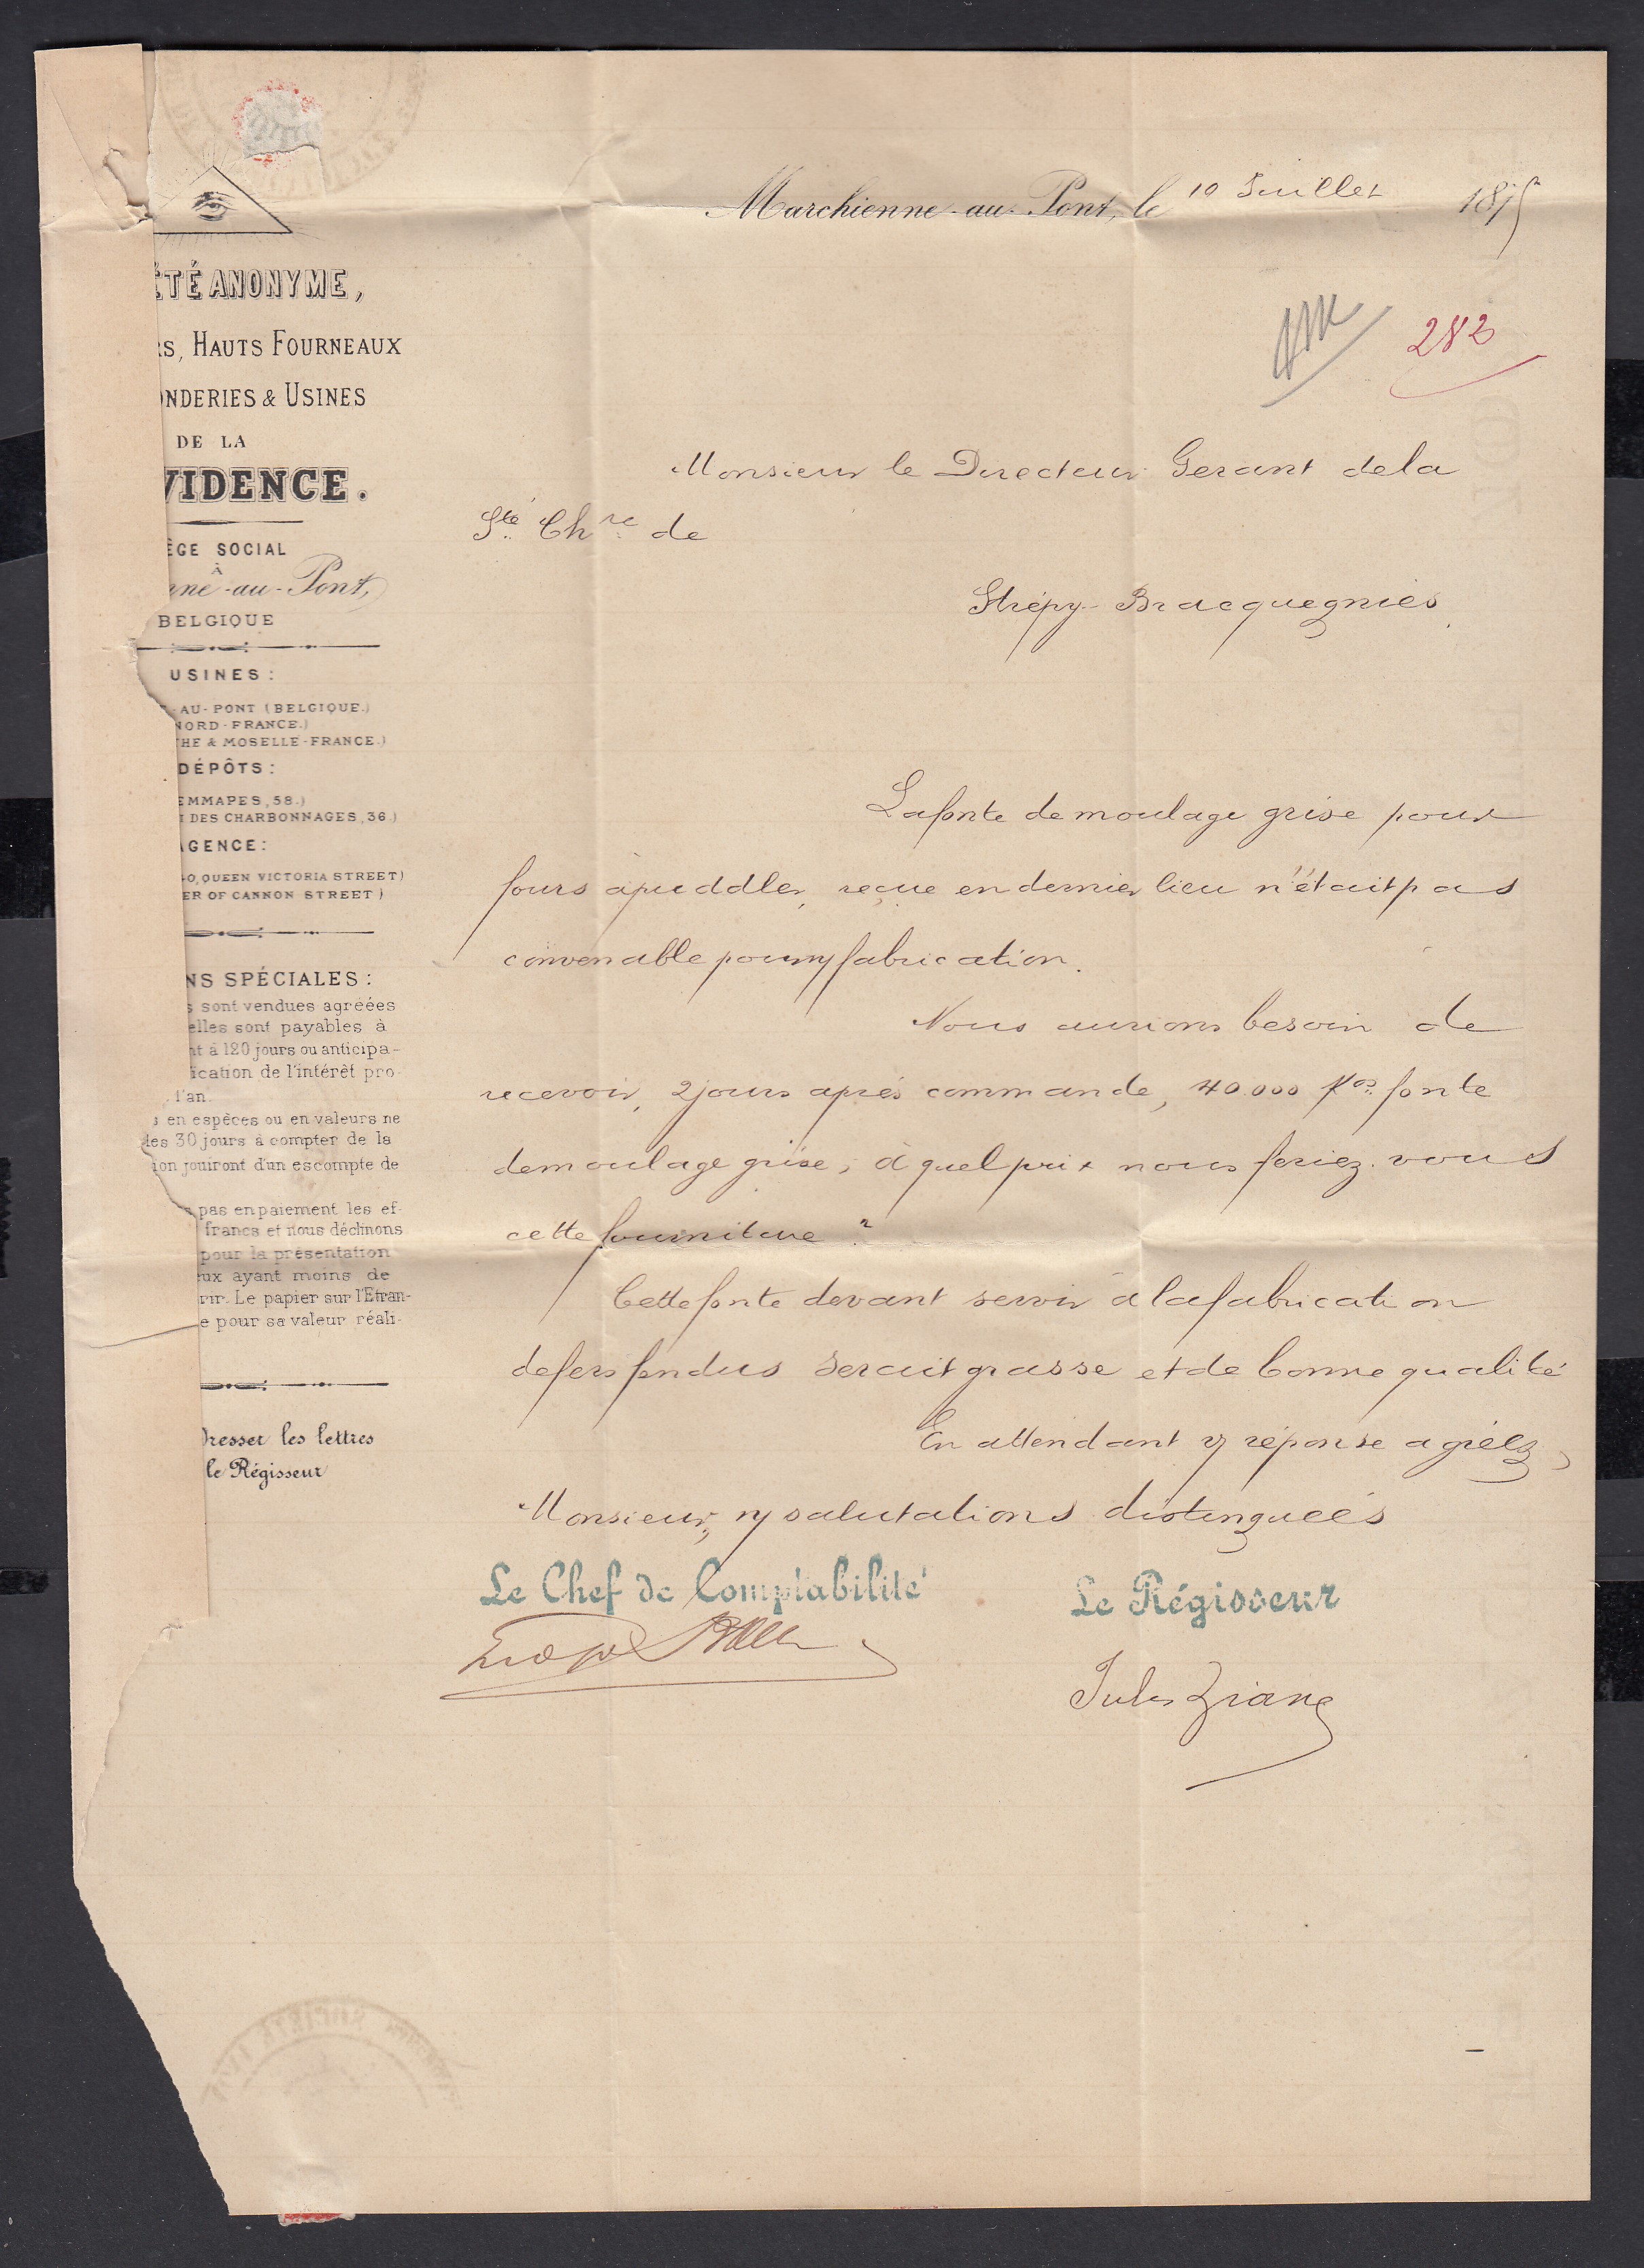 Marchienne-au-Pont, le 10 Juillet 1875
282
ÉTÉ ANONYME,
RS, HAUTS FOURNEAUX
ONDERIES & USINES
DE LA
VIDENCE.
ÈGE SOCIAL
À
nne-au-Pont,
BELGIQUE
USINES:
-AU-PONT (BELGIQUE.)
NORD-FRANCE.)
THE & MOSELLE-FRANCE.)
DÉPÔTS:
EMMAPES, 58.)
DES CHARBONNAGES, 36.)
AGENCE:
O, QUEEN VICTORIA STREET)
ER OF CANNON STREET)
NS SPÉCIALES:
s sont vendues agréées
elles sont payables à
nt à 120 jours ou anticipa-
ication de l'intérêt pro-
l'an.
s en espèces ou en valeurs ne
des 30 jours à compter de la
ion jouiront d'un escompte de
s pas en paiement les ef-
francs et nous déclinons
pour la présentation
eux ayant moins de
rir. Le papier sur l'Etran-
e pour sa valeur réali-
dresser les lettres
le Régisseur
Monsieur le Directeur Gerant de la
Sté Chre de
Strépy-Bracquegnies.
La fonte de moulage grise pour
fours à puddler, reçue en dernier lieu n'était pas
convenable pour n/ fabrication.
Nous aurions besoin de
recevoir, 2 jours après commande, 40.000 Kos fonte
de moulage grise, à quel prix nous feriez-vous
cette fourniture?
Cette fonte devant servir à la fabrication
de fers fendus serait grasse et de bonne qualité
En attendant v/ réponse agréez,
Monsieur, n/ salutations distinguées
Le Chef de Comptabilité
Le Régisseur
Jules